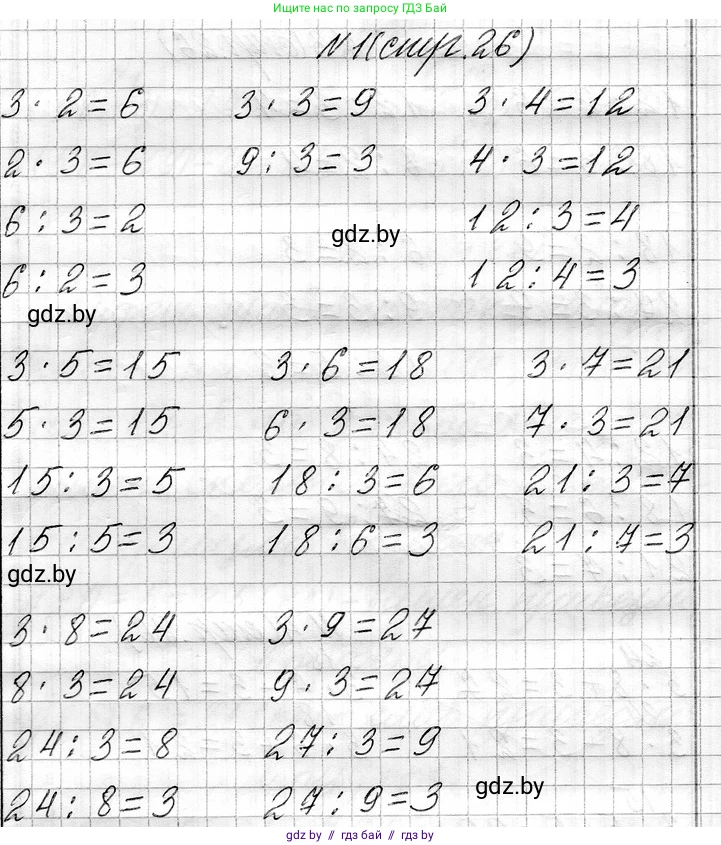 Ищите нас по запросу ГДЗ Бай
N 1(стр.26)
3 · 2 = 6   3 · 3 = 9   3 · 4 = 12
2 · 3 = 6   9 : 3 = 3   4 · 3 = 12
6 : 3 = 2   12 : 3 = 4
gdz.by
6 : 2 = 3   12 : 4 = 3
gdz.by
3 · 5 = 15   3 · 6 = 18   3 · 7 = 21
5 · 3 = 15   6 · 3 = 18   7 · 3 = 21
15 : 3 = 5   18 : 3 = 6   21 : 3 = 7
15 : 5 = 3   18 : 6 = 3   21 : 7 = 3
gdz.by
3 · 8 = 24   3 · 9 = 27
8 · 3 = 24   9 · 3 = 27
24 : 3 = 8   27 : 3 = 9
gdz.by
24 : 8 = 3   27 : 9 = 3
gdz by // гдз бай // gdz.by